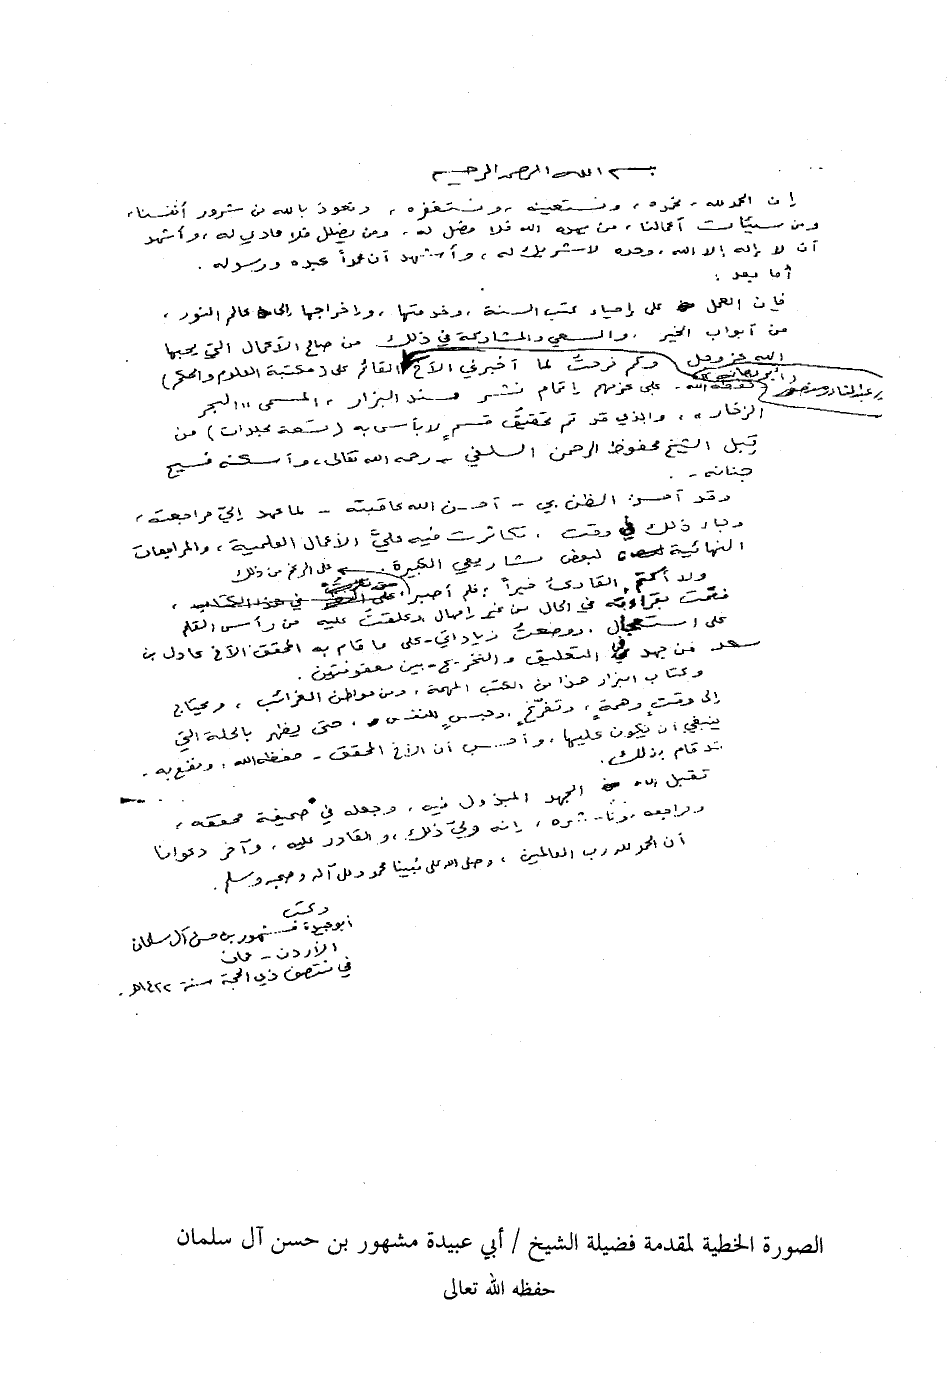 بسم الله الرحمن الرحيم
إن الحمد لله، نحمده، ونستعينه، ونستغفره، ونعوذ بالله من شرور أنفسنا،
ومن سيئات أعمالنا، من يهده الله فلا مضل له، ومن يضلل فلا هادي له، وأشهد
أن لا إله إلا الله، وحده لا شريك له، وأشهد أن محمداً عبده ورسوله.
أما بعد:
فإن العمل على إحياء كتب السنة، وخدمتها، وإخراجها إلى عالم النور،
من أبواب الخير، والسعي والمشاركة في ذلك من صالح الأعمال التي يحبها
الله عز وجل وكم فرحتُ لما أخبرني الأخ القائم على (مكتبة العلوم والحكم)
عبدالقادر منصور
حفظه الله - على عزمهم إتمام نشر مسند البزار، المسمى "البحر
الزخار"، والذي قد تم تحقيق قسم لا بأس به (تسعة مجلدات) من
قِبل الشيخ محفوظ الرحمن السلفي - رحمه الله تعالى، وأسكنه فسيح
جنانه -.
وقد أحسن الظن بي - أحسن الله عاقبته - لما عهد إليّ مراجعته،
وجاء ذلك في وقت، تكاثرت فيه عليّ الأعمال العلمية، والمراجعات
النهائية لبعض مشاريعي الكبيرة.
على الرغم من ذلك
ولا أكتم القارئ خبراً، فلم أصبر
فقمت بقراءته في الحال من غير إمهال وعلقتُ عليه من رأس القلم
على استعجال، ووضعتُ زياداتي - على ما قام به المحقق الأخ عادل بن
سعد من جهد في التعليق والتخريج - بين معقوفتين.
وكتاب البزار هذا من الكتب المهمة، ومن مواطن الغرائب، ويحتاج
إلى وقتٍ وهمةٍ، وتفرّغٍ، وحبسٍ للنفس، حتى يظهر بالحلة التي
ينبغي أن يكون عليها، وأحسب أن الأخ المحقق - حفظه الله، ونفع به -
قد قام بذلك.
تقبل الله الجهد المبذول فيه، وجعله في صحيفة محققه،
ومراجعه، وناشره، إنه ولي ذلك، والقادر عليه، وآخر دعوانا
أن الحمد لله رب العالمين، وصلى الله على نبينا محمد وعلى آله وصحبه وسلم.
وكتب
أبو عبيدة مشهور بن حسن آل سلمان
الأردن - عمان
في منتصف ذي الحجة سنة ١٤٢٢هـ.
الصورة الخطية لمقدمة فضيلة الشيخ / أبي عبيدة مشهور بن حسن آل سلمان
حفظه الله تعالى